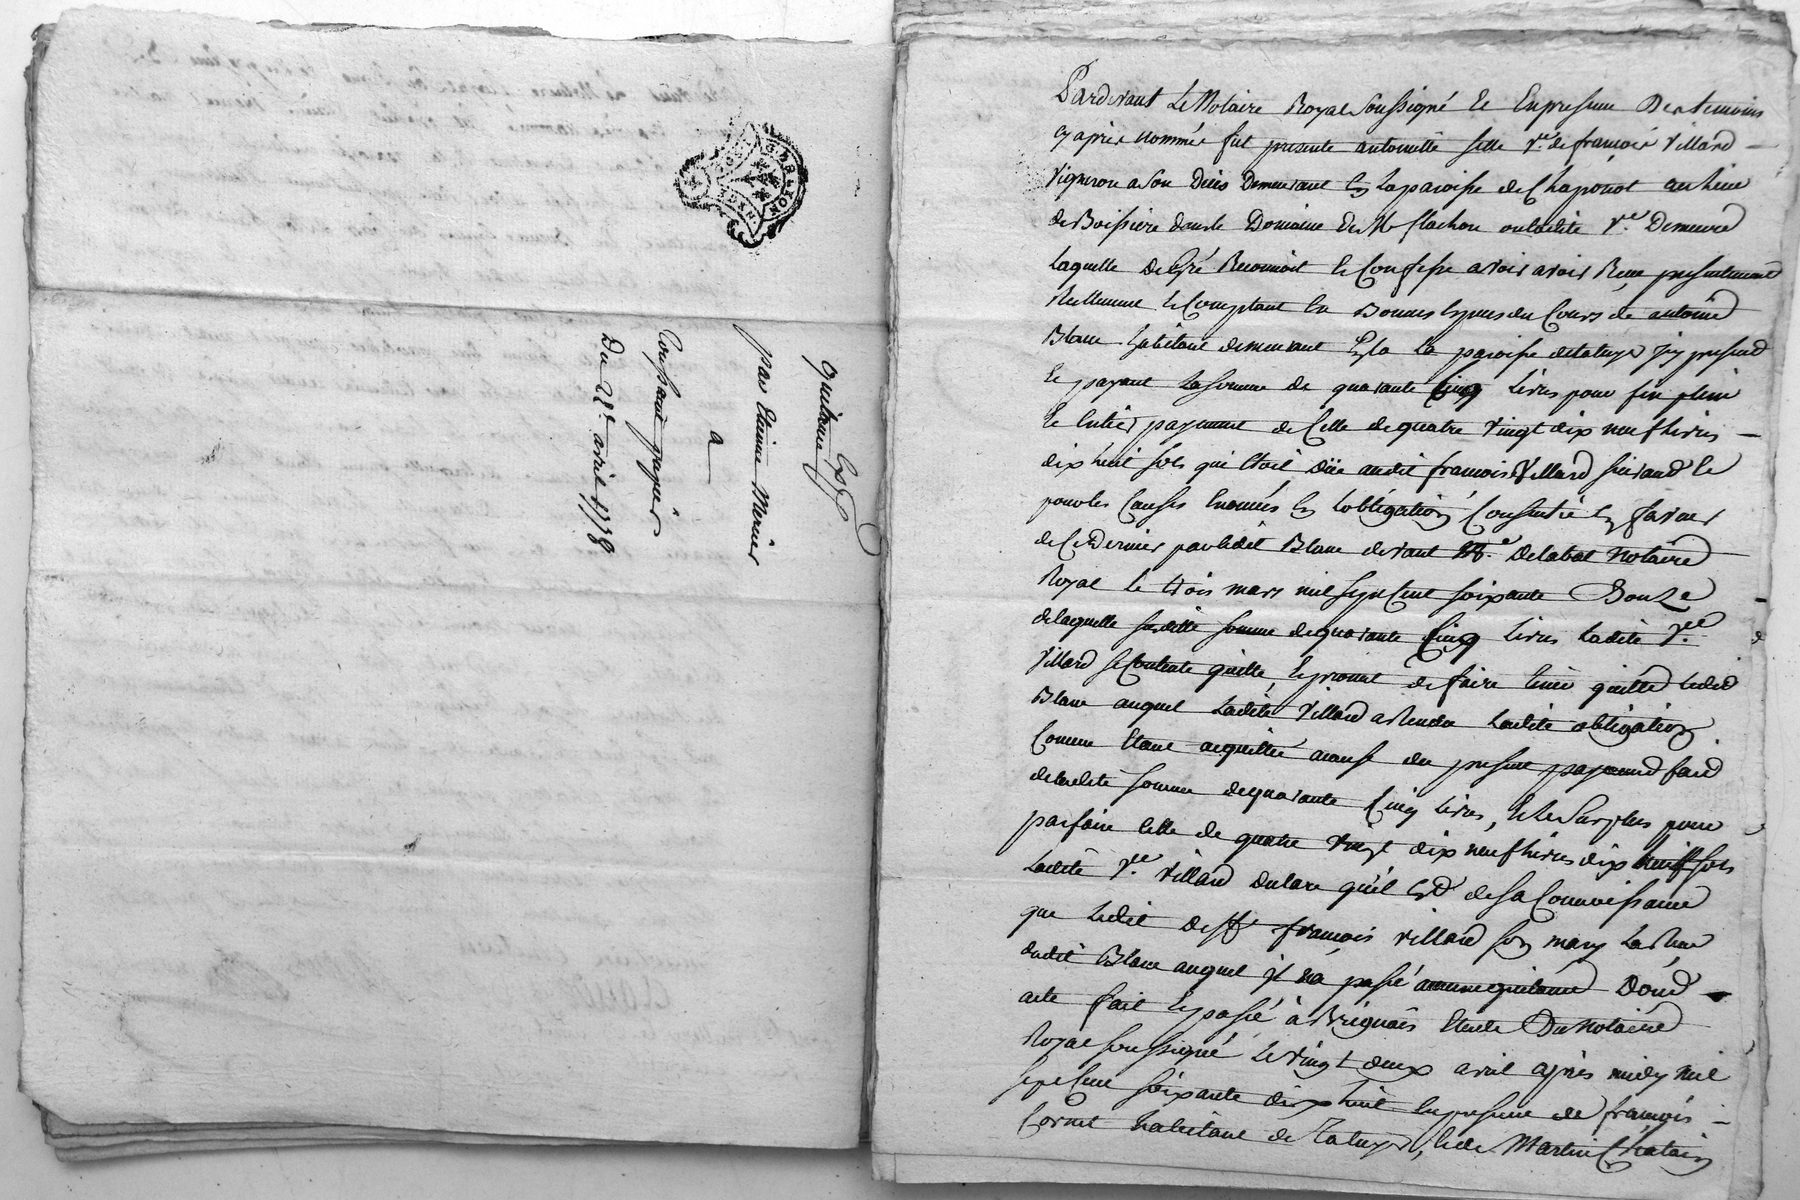 GEN. DE LYON
quittance
par Etienne Mercier
a
Du 22e avril 1778
Pardevant Le Notaire Royal Soussigné Et En presence Des temoins
cy après nommés fut presente antoinette ve. de francois Villard
Vigneron a son Déces Demeurant En la paroisse de Chaponot au lieu
de Boissiere dans le Domaine de Mr flachon ou ladite Ve. Demeure
Laquelle de gré Reconnoit Et Confesse avoir avoir Reçu presentement
Reellement Et Comptant En Bonnes Especes du Cours de antoine
Blanc habitant demeurant En la paroisse de taluyer jcy present
Et payant La somme de quarante Cinq Livres pour fin plein
Et Entier payement de Celle de quatre Vingt dix neuf Livres
dix huit sols qui Etoit düe audit francois Villard suivant Et
pour les Causes Enoncés En Lobligation Consentie En faveur
de Ce Dernier par ledit Blanc devant Me. Delabat Notaire
Royal Le trois mars mil sept Cent soixante Douze
de laquelle susditte somme de quarante Cinq Livres Ladite Ve.
Villard se Contente quitte, Et promet de faire tenir quitte Ledit
Blanc auquel Ladite Villard a Rendu Ladite obligation
Comme Etant acquittée a cause du present payement fait
de ladite somme de quarante Cinq Livres, Et Le Surplus pour
parfaire Celle de quatre Vingt dix neuf Livres dix huit sols
Ladite Ve. Villard Declare qu'il Est de sa Connoissance
que Ledit deff. francois Villard son mary La Reçue
dudit Blanc auquel jl n'a passé aucune quittance Dont
acte fait Et passé à Brignais Etude Du Notaire
Royal soussigné Le Vingt deux avril après midy mil
sept Cent soixante dix huit En presence de francois
Cornet habitant de Taluyer, Et de Martin Chatain